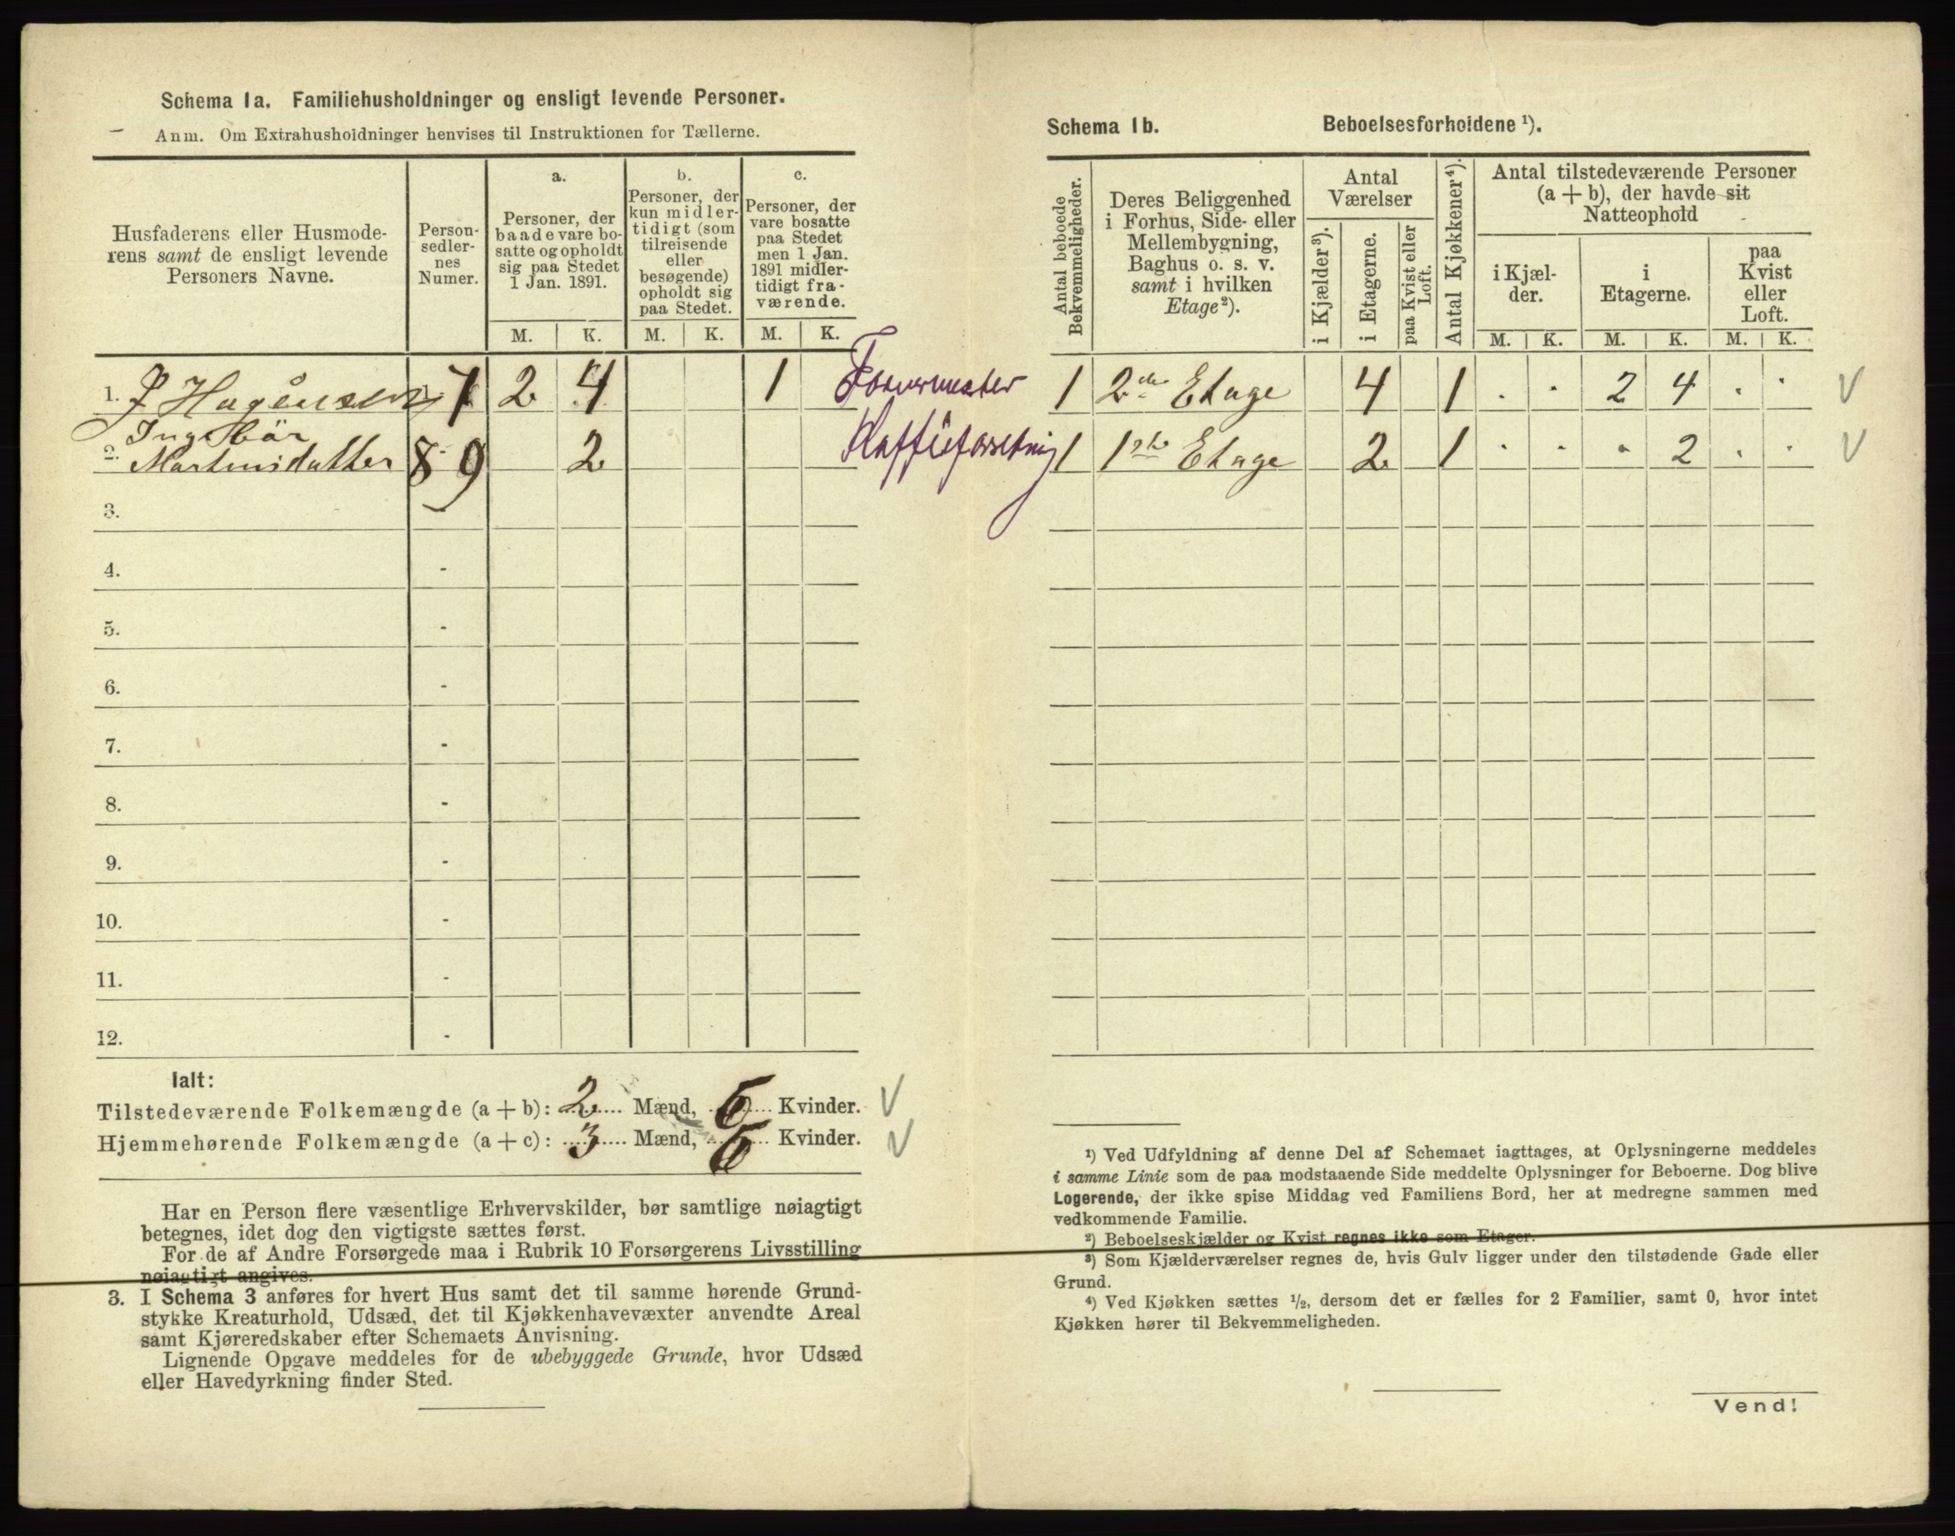 Schema 1a. Familiehusholdninger og ensligt levende Personer.
Anm. Om Extrahusholdninger henvises til Instruktionen for Tællerne.
Husfaderens eller Husmoderens samt de ensligt levende Personers Navne.
Person-sedler-nes Numer.
a.
Personer, der baade vare bosatte og opholdt sig paa Stedet 1 Jan. 1891.
b.
Personer, der kun midlertidigt (som tilreisende eller besøgende) opholdt sig paa Stedet.
c.
Personer, der vare bosatte paa Stedet men 1 Jan. 1891 midlertidigt fraværende.
M. K. M. K. M. K.
1. J Hagensen 1 7 2 4 1
2. Ingebår Martinsdatter 8 - 9 2
3. -
4. -
5. -
6. -
7. -
8. -
9. -
10. -
11. -
12. -
Ialt:
Tilstedeværende Folkemængde (a + b): 2 Mænd, 6 Kvinder. V
Hjemmehørende Folkemængde (a + c): 3 Mænd, 6 Kvinder. V
Har en Person flere væsentlige Erhvervskilder, bør samtlige nøiagtigt
betegnes, idet dog den vigtigste sættes først.
For de af Andre Forsørgede maa i Rubrik 10 Forsørgerens Livsstilling
nøiagtigt angives.
3. I Schema 3 anføres for hvert Hus samt det til samme hørende Grund-
stykke Kreaturhold, Udsæd, det til Kjøkkenhavevæxter anvendte Areal
samt Kjøreredskaber efter Schemaets Anvisning.
Lignende Opgave meddeles for de ubebyggede Grunde, hvor Udsæd
eller Havedyrkning finder Sted.
Schema 1b. Beboelsesforholdene ¹).
Antal beboede Bekvemmeligheder.
Deres Beliggenhed i Forhus, Side- eller Mellembygning, Baghus o. s. v. samt i hvilken Etage²).
Antal Værelser
i Kjælder³).
i Etagerne.
paa Kvist eller Loft.
Antal Kjøkkener⁴).
Antal tilstedeværende Personer (a + b), der havde sit Natteophold
i Kjælder.
i Etagerne.
paa Kvist eller Loft.
M. K. M. K. M. K.
1 2den Etage 4 1 . . 2 4 . . V
Kaffeforretning 1 1ste Etage 2 1 . . . 2 . . V
¹) Ved Udfyldning af denne Del af Schemaet iagttages, at Oplysningerne meddeles
i samme Linie som de paa modstaaende Side meddelte Oplysninger for Beboerne. Dog blive
Logerende, der ikke spise Middag ved Familiens Bord, her at medregne sammen med
vedkommende Familie.
²) Beboelseskjælder og Kvist regnes ikke som Etager.
³) Som Kjælderværelser regnes de, hvis Gulv ligger under den tilstødende Gade eller
Grund.
⁴) Ved Kjøkken sættes ½, dersom det er fælles for 2 Familier, samt 0, hvor intet
Kjøkken hører til Bekvemmeligheden.
Vend!